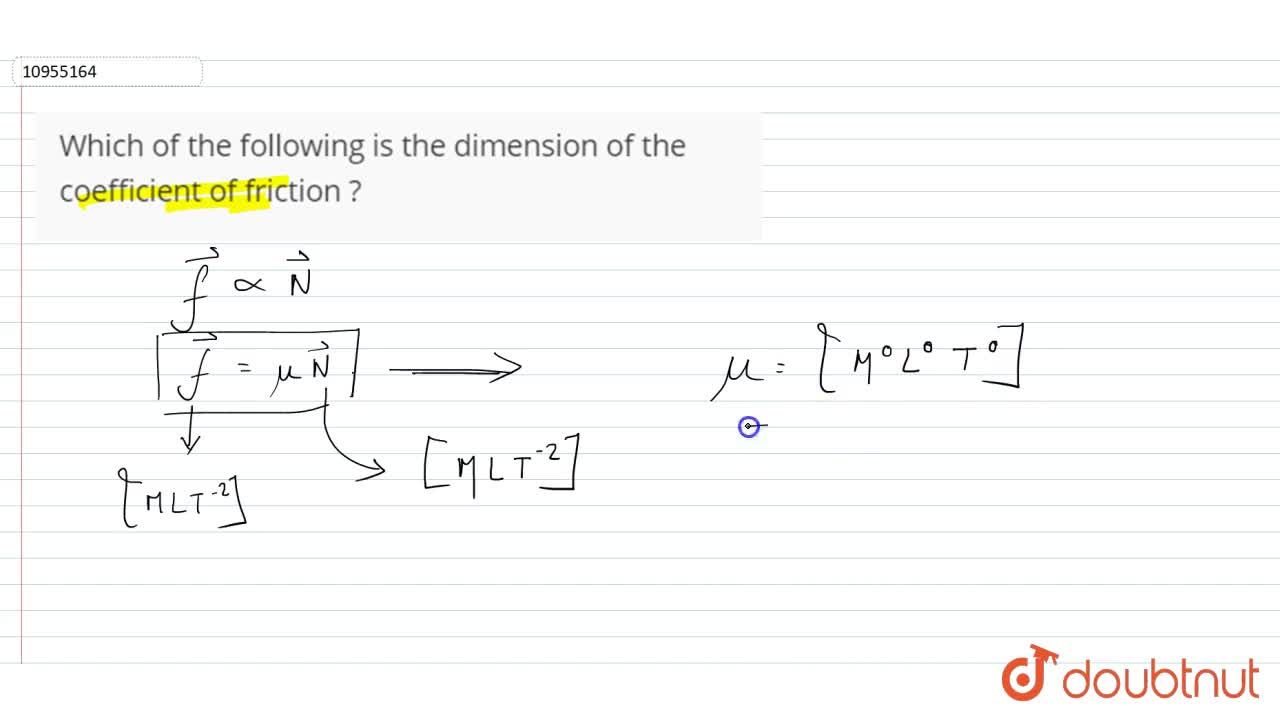 10955164
Which of the following is the dimension of the
coefficient of friction ?
f⃗ ∝ N⃗
f⃗ = μN⃗
μ = [M⁰L⁰T⁰]
[MLT⁻²]
[MLT⁻²]
doubtnut